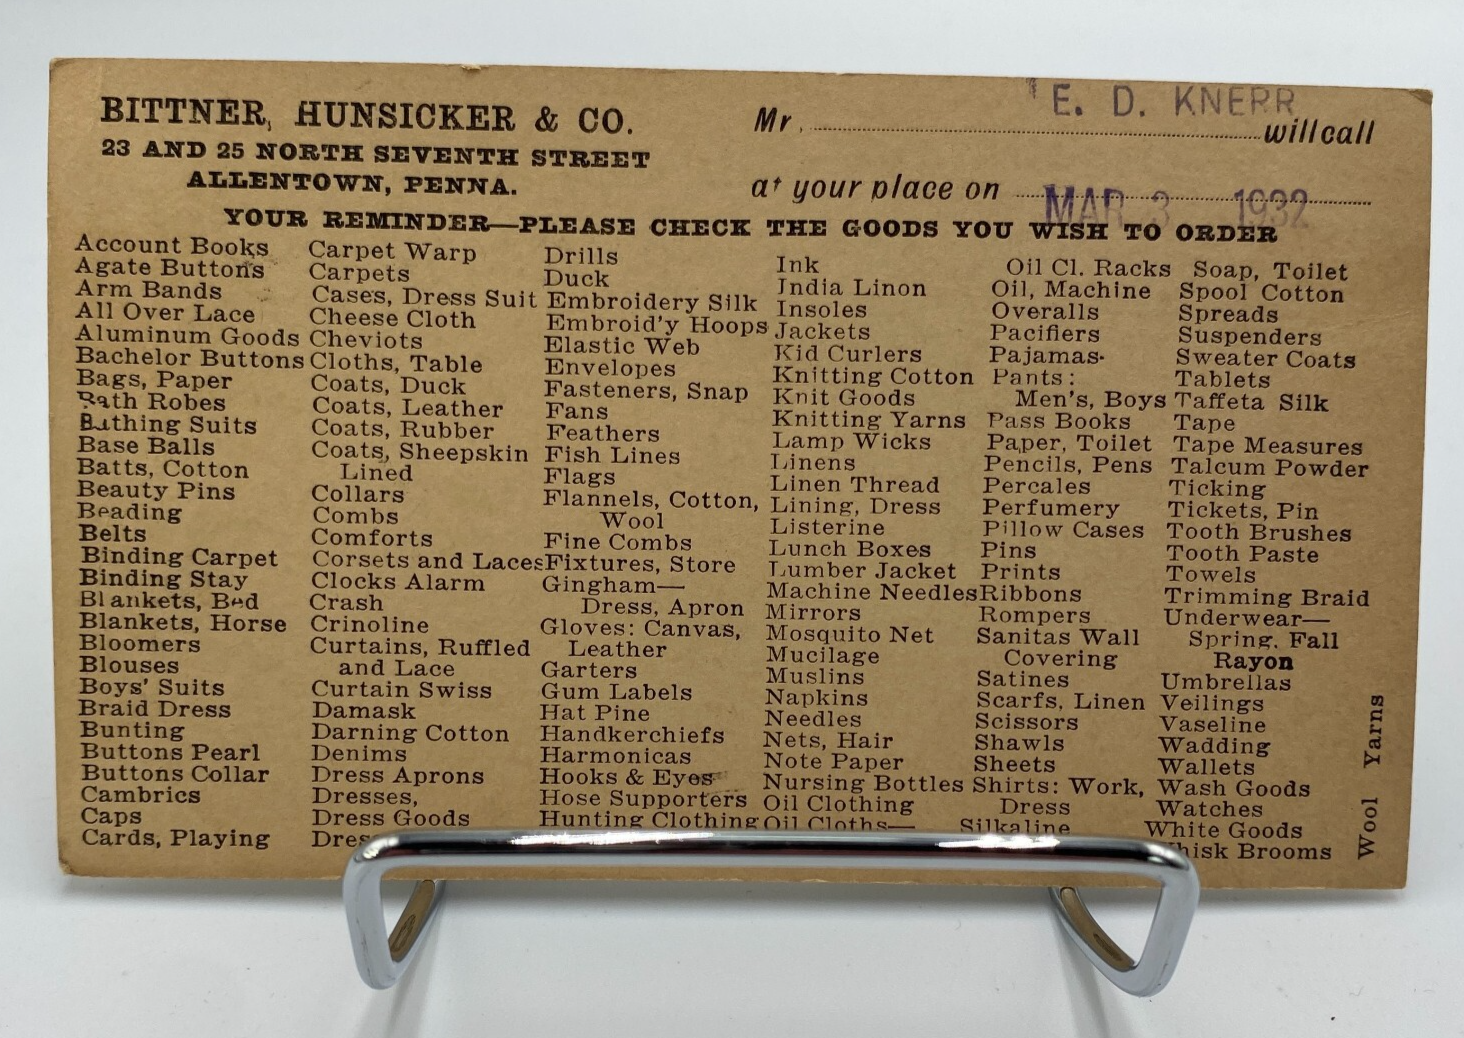 BITTNER, HUNSICKER & CO.
23 AND 25 NORTH SEVENTH STREET
ALLENTOWN, PENNA.
E. D. KNERR
Mr. will call
at your place on MAR 3 1932
YOUR REMINDER—PLEASE CHECK THE GOODS YOU WISH TO ORDER
Account Books
Agate Buttons
Arm Bands
All Over Lace
Aluminum Goods
Bachelor Buttons
Bags, Paper
Bath Robes
Bathing Suits
Base Balls
Batts, Cotton
Beauty Pins
Beading
Belts
Binding Carpet
Binding Stay
Blankets, Bed
Blankets, Horse
Bloomers
Blouses
Boys' Suits
Braid Dress
Bunting
Buttons Pearl
Buttons Collar
Cambrics
Caps
Cards, Playing
Carpet Warp
Carpets
Cases, Dress Suit
Cheese Cloth
Cheviots
Cloths, Table
Coats, Duck
Coats, Leather
Coats, Rubber
Coats, Sheepskin
Lined
Collars
Combs
Comforts
Corsets and Laces
Clocks Alarm
Crash
Crinoline
Curtains, Ruffled
and Lace
Curtain Swiss
Damask
Darning Cotton
Denims
Dress Aprons
Dresses,
Dress Goods
Drills
Duck
Embroidery Silk
Embroid'y Hoops
Elastic Web
Envelopes
Fasteners, Snap
Fans
Feathers
Fish Lines
Flags
Flannels, Cotton,
Wool
Fine Combs
Fixtures, Store
Gingham—
Dress, Apron
Gloves: Canvas,
Leather
Garters
Gum Labels
Hat Pine
Handkerchiefs
Harmonicas
Hooks & Eyes
Hose Supporters
Hunting Clothing
Ink
India Linon
Insoles
Jackets
Kid Curlers
Knitting Cotton
Knit Goods
Knitting Yarns
Lamp Wicks
Linens
Linen Thread
Lining, Dress
Listerine
Lunch Boxes
Lumber Jacket
Machine Needles
Mirrors
Mosquito Net
Mucilage
Muslins
Napkins
Needles
Nets, Hair
Note Paper
Nursing Bottles
Oil Clothing
Oil Cloths—
Oil Cl. Racks
Oil, Machine
Overalls
Pacifiers
Pajamas
Pants:
Men's, Boys
Pass Books
Paper, Toilet
Pencils, Pens
Percales
Perfumery
Pillow Cases
Pins
Prints
Ribbons
Rompers
Sanitas Wall
Covering
Satines
Scarfs, Linen
Scissors
Shawls
Sheets
Shirts: Work,
Dress
Silkaline
Soap, Toilet
Spool Cotton
Spreads
Suspenders
Sweater Coats
Tablets
Taffeta Silk
Tape
Tape Measures
Talcum Powder
Ticking
Tickets, Pin
Tooth Brushes
Tooth Paste
Towels
Trimming Braid
Underwear—
Spring, Fall
Rayon
Umbrellas
Veilings
Vaseline
Wadding
Wallets
Wash Goods
Watches
White Goods
Whisk Brooms
Wool Yarns